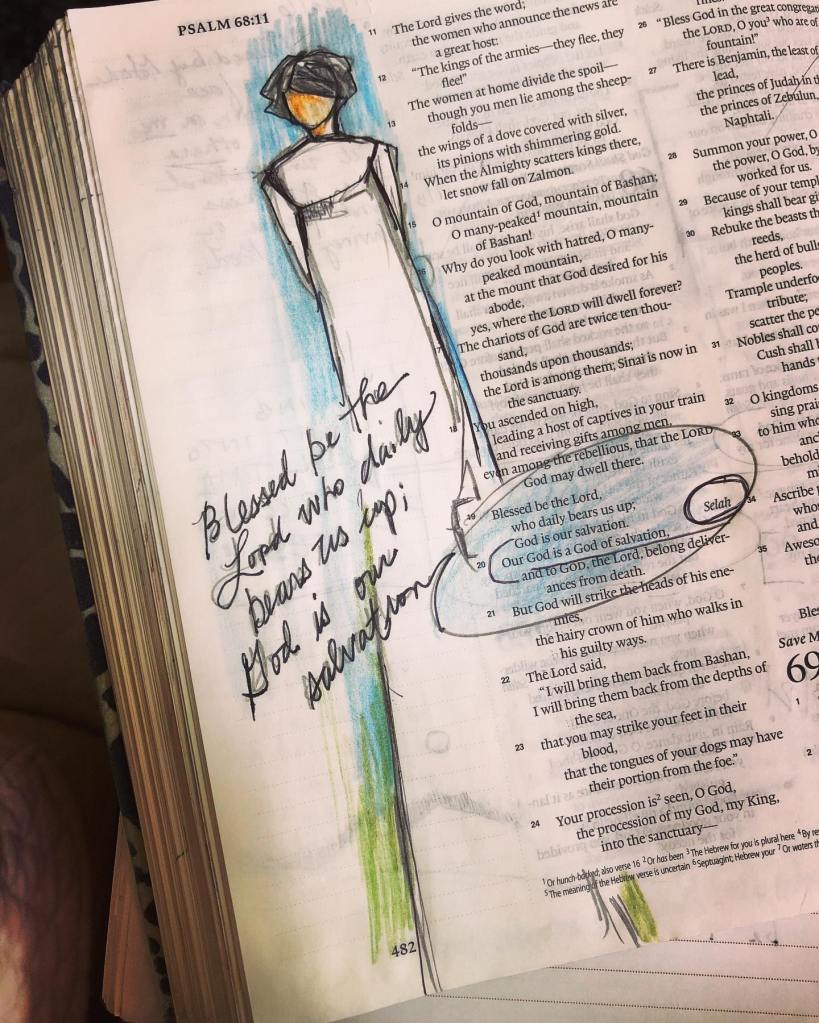 PSALM 68:11
Blessed be the
Lord who daily
bears us up;
God is our
salvation
11 The Lord gives the word;
the women who announce the news are
a great host:
12 "The kings of the armies—they flee, they
flee!"
The women at home divide the spoil—
13 though you men lie among the sheep-
folds—
the wings of a dove covered with silver,
its pinions with shimmering gold.
14 When the Almighty scatters kings there,
let snow fall on Zalmon.
15 O mountain of God, mountain of Bashan;
O many-peaked¹ mountain, mountain
of Bashan!
16 Why do you look with hatred, O many-
peaked mountain,
at the mount that God desired for his
abode,
yes, where the LORD will dwell forever?
17 The chariots of God are twice ten thou-
sand,
thousands upon thousands;
the Lord is among them; Sinai is now in
the sanctuary.
18 You ascended on high,
leading a host of captives in your train
and receiving gifts among men,
even among the rebellious, that the LORD
God may dwell there.
19 Blessed be the Lord,
who daily bears us up;
God is our salvation. Selah
20 Our God is a God of salvation,
and to GOD, the Lord, belong deliver-
ances from death.
21 But God will strike the heads of his ene-
mies,
the hairy crown of him who walks in
his guilty ways.
22 The Lord said,
"I will bring them back from Bashan,
I will bring them back from the depths of
the sea,
23 that you may strike your feet in their
blood,
that the tongues of your dogs may have
their portion from the foe."
24 Your procession is² seen, O God,
the procession of my God, my King,
into the sanctuary—
26 "Bless God in the great congrega
the LORD, O you³ who are of
fountain!"
27 There is Benjamin, the least of
lead,
the princes of Judah in th
the princes of Zebulun,
Naphtali.
28 Summon your power, O
the power, O God, by
worked for us.
29 Because of your templ
kings shall bear gi
30 Rebuke the beasts th
reeds,
the herd of bull
peoples.
Trample underfo
tribute;
scatter the pe
31 Nobles shall co
Cush shall h
hands
32 O kingdoms
sing prai
33 to him who
anci
behold
mi
34 Ascribe p
whos
and
35 Aweso
the
Bles
Save M
69
1
2
¹ Or hunch-backed; also verse 16 ² Or has been ³ The Hebrew for you is plural here ⁴ By re
⁵ The meaning of the Hebrew verse is uncertain ⁶ Septuagint; Hebrew your ⁷ Or waters th
482